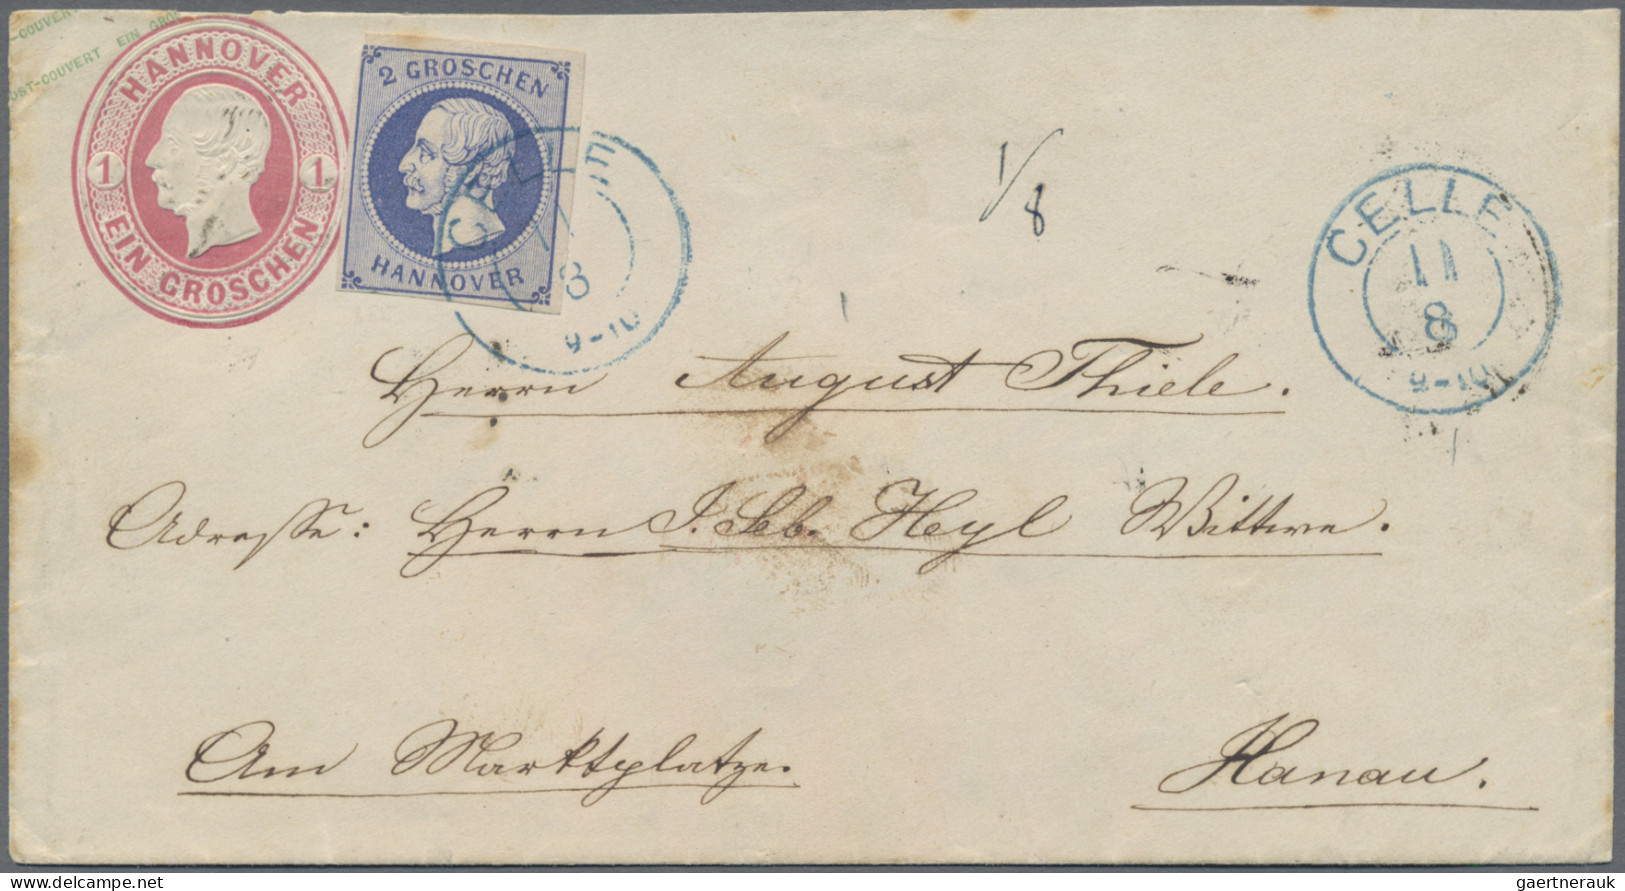 POST-COUVERT EIN GROS
HANNOVER
1 1
EIN GROSCHEN
2 GROSCHEN
HANNOVER
CELLE
8
9-10
1/8
CELLE
11
8
9-10
Herrn August Thiele.
Adresse: Herrn J. Seb. Heyl Wittwe.
Am Marktplatze.
Hanau.
gaertnerauk@delcampe.net